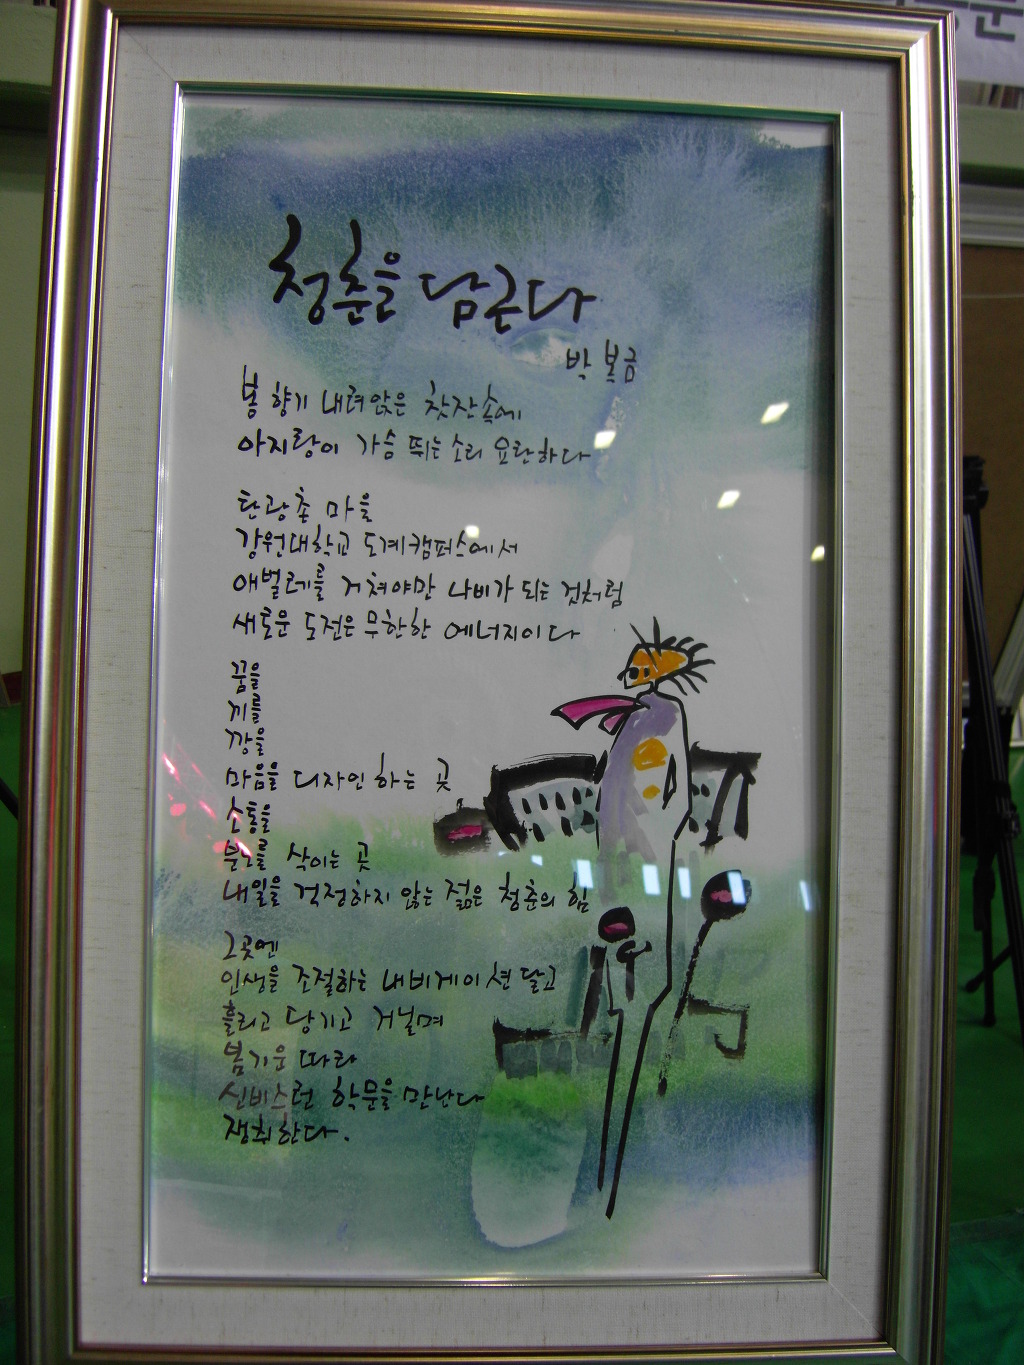 청춘을 담근다
박복금
봄 향기 내려앉은 찻잔속에
아지랑이 가슴 뛰는 소리 요란하다
탄광촌 마을
강원대학교 도계캠퍼스에서
애벌레를 거쳐야만 나비가 되는 것처럼
새로운 도전은 무한한 에너지이다
꿈을
끼를
깡을
마음을 디자인 하는 곳
소통을
분노를 삭이는 곳
내일을 걱정하지 않는 젊은 청춘의 힘
그곳엔
인생을 조절하는 내비게이션 달고
흘리고 당기고 거닐며
봄기운 따라
신비스런 학문을 만난다
쟁취한다.